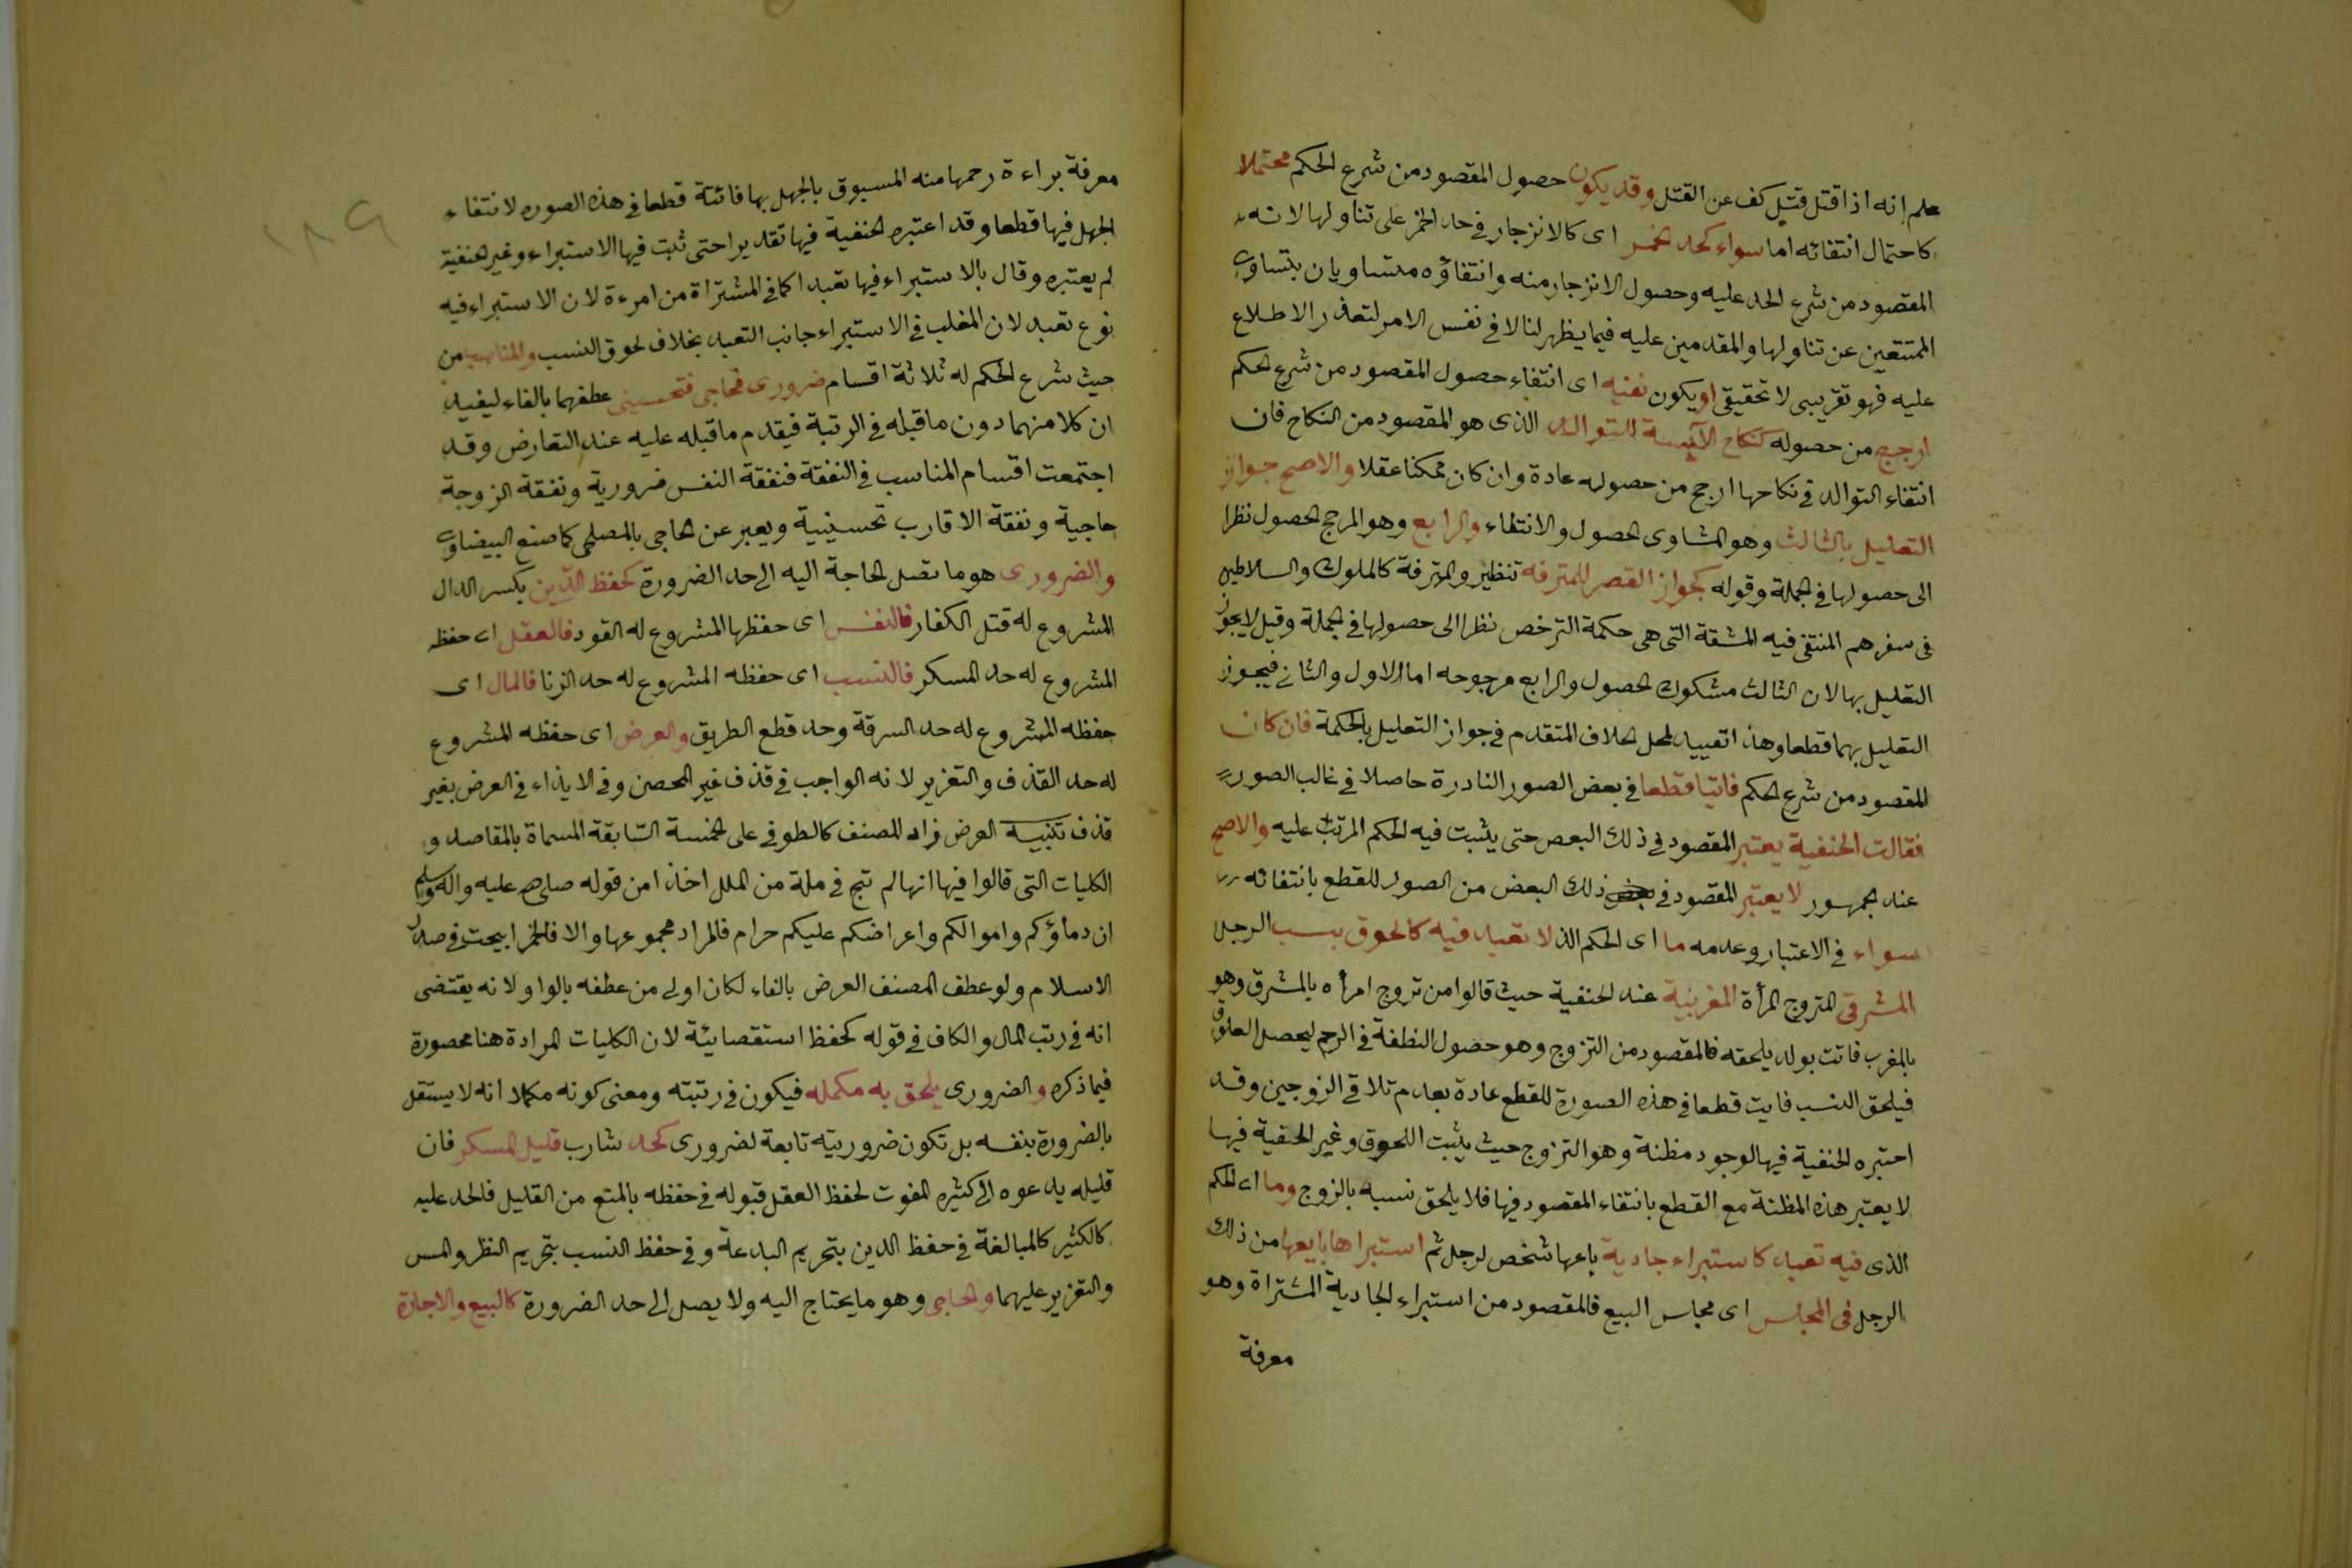 علم انه اذا قتل قتل كف عن القتل وقد يكون حصول المقصود من شرع الحكم محتملا
كاحتمال انتفائه اما سواء كحد الخمر اى كالانزجار فى حد الخمر على تناولها لانه
المقصود من شرع الحد عليه وحصول الانزجار منه وانتفاؤه متساويان بتساوى
الممتنعين عن تناولها والمقدمين عليه فيما يظهر لنا لا فى نفس الامر لتعذر الاطلاع
عليه فهو تقريبى لا تحقيقى او يكون نفيه اى انتفاء حصول المقصود من شرع الحكم
ارجح من حصوله كنكاح الآيسة للتوالد الذى هو المقصود من النكاح فان
انتفاء التوالد فى نكاحها ارجح من حصوله عادة وان كان ممكنا عقلا والاصح جواز
التعليل بالثالث وهو المتساوى الحصول والانتفاء والرابع وهو المرجح الحصول نظرا
الى حصولها فى الجملة وقوله كجواز القصر للمترفه تنظير والمترفة كالملوك والسلاطين
فى سفرهم المنتفى فيه المشقة التى هى حكمة الترخص نظرا الى حصولها فى الجملة وقيل لا يجوز
التعليل بها لان الثالث مشكوك الحصول والرابع مرجوحه اما الاول والثانى فيجوز
التعليل بهما قطعا وهذا تقييد لمحل الخلاف المتقدم فى جواز التعليل بالحكمة فان كان
المقصود من شرع الحكم فائتا قطعا فى بعض الصور النادرة حاصلا فى غالب الصور
فقالت الحنفية يعتبر المقصود فى ذلك البعض حتى يثبت فيه الحكم المرتب عليه والاصح
عند الجمهور لا يعتبر المقصود فى ذلك البعض من الصور للقطع بانتفائه
سواء فى الاعتبار وعدمه ما اى الحكم الذ لا تعبد فيه كالحوق بسب الرجل
المشرقى المتزوج المرأة المغربية عند الحنفية حيث قالوا من تزوج امرأه بالمشرق وهو
بالمغرب فاتت بولد يلحقه فالمقصود من التزوج وهو حصول النطفة فى الرحم ليحصل العلوق
فيلحق النسب فايت قطعا فى هذه الصورة للقطع عادة بعدم تلاقى الزوجين وقد
اعتبره الحنفية فيها لوجود مظنة وهو التزوج حيث يثبت اللحوق وغير الحنفية فيها
لا يعتبر هذه المظنة مع القطع بانتفاء المقصود فيها فلا يلحق نسبه بالزوج وما اى الحكم
الذى فيه تعبد كاستبراء جارية باعها شخص لرجل ثم استبراها بايعها من ذلك
الرجل فى المجلس اى مجلس البيع فالمقصود من استبراء الجارية المشتراة وهو
معرفة
١٨٩
معرفة براءة رحمها منه المسبوق بالجهل بها فائتة قطعا فى هذه الصوره لانتفاء
الجهل فيها قطعا وقد اعتبره الحنفية فيها تقديرا حتى ثبت فيها الاستبراء وغير الحنفية
لم يعتبره وقال بالاستبراء فيها تعبدا كما فى المشتراة من امرءة لان الاستبراء فيه
نوع تعبد لان المغلب فى الاستبراء جانب التعبد بخلاف لحوق النسب والمناسب من
حيث شرع الحكم له ثلاثة اقسام ضرورى فحاجى فتحسينى عطفهما بالفاء ليفيد
ان كلا منهما دون ما قبله فى الرتبة فيقدم ما قبله عليه عند التعارض وقد
اجتمعت اقسام المناسب فى النفقة فنفقة النفس ضرورية ونفقة الزوجة
حاجية ونفقة الاقارب تحسينية ويعبر عن الحاجى بالمصلحى كما صنع البيضاوى
والضرورى هو ما تصل الحاجة اليه الى حد الضرورة كحفظ الدّين بكسر الدال
المشروع له قتل الكفار فالنفس اى حفظها المشروع له القود فالعقل اى حفظه
المشروع له حد المسكر فالنسب اى حفظه المشروع له حد الزنا فالمال اى
حفظه المشروع له حد السرقة وحد قطع الطريق والعرض اى حفظه المشروع
له حد القذف والتعزير لانه الواجب فى قذف غير المحصن وفى الايذاء فى العرض بغير
قذف تنبيه العرض زاد المصنف كالطوفى على الخمسة السّابقة المسماة بالمقاصد و
الكليات التى قالوا فيها انها لم تبح فى ملة من الملل اخذا من قوله صلى الله عليه واله وسلم
ان دماؤكم واموالكم واعراضكم عليكم حرام فالمراد مجموعها والا فالخمر ابيحت فى صدر
الاسلام ولو عطف المصنف العرض بالفاء لكان اولى من عطفه بالواو لانه يقتضى
انه فى رتب المال والكاف فى قوله كحفظ استقصائية لان الكليات المرادة هنا محصورة
فيما ذكره والضرورى يلحق به مكمله فيكون فى رتبته ومعنى كونه مكملا انه لا يستقل
بالضرورة بنفسه بل تكون ضروريته تابعة لضرورى كحد شارب قليل المسكر فان
قليله يدعوه الى كثيره المفوت لحفظ العقل قبوله فى حفظه بالمنع من القليل فالحد عليه
كالكثير كالمبالغة فى حفظ الدين بتحريم البدعة وفى حفظ النسب بتحريم النظر والمس
والتعزير عليهما والحاجى وهو ما يحتاج اليه ولا يصل الى حد الضرورة كالبيع والاجارة